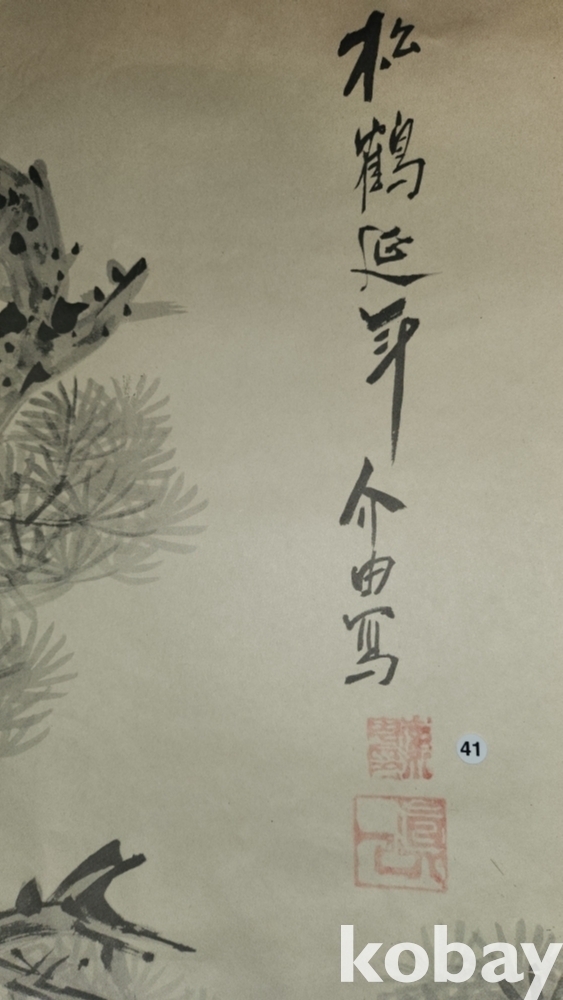 松鶴延年 介由寫
41
kobay